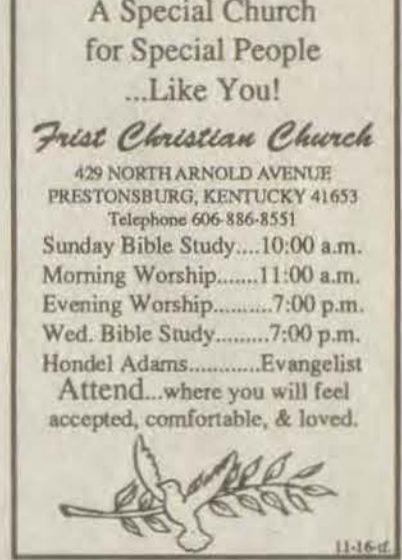 A Special Church
for Special People
...Like You!
Frist Christian Church
429 NORTH ARNOLD AVENUE
PRESTONSBURG, KENTUCKY 41653
Telephone 606-886-8551
Sunday Bible Study....10:00 a.m.
Morning Worship.......11:00 a.m.
Evening Worship..........7:00 p.m.
Wed. Bible Study.........7:00 p.m.
Hondel Adams............Evangelist
Attend...where you will feel
accepted, comfortable, & loved.
11-16-tf.